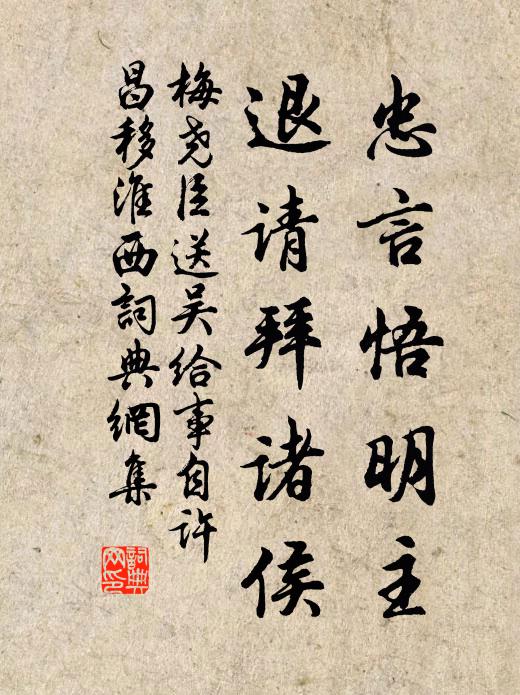 忠言悟明主
退请拜诸侯
梅尧臣送吴给事自许
昌移淮西詞典網集
詞典网印